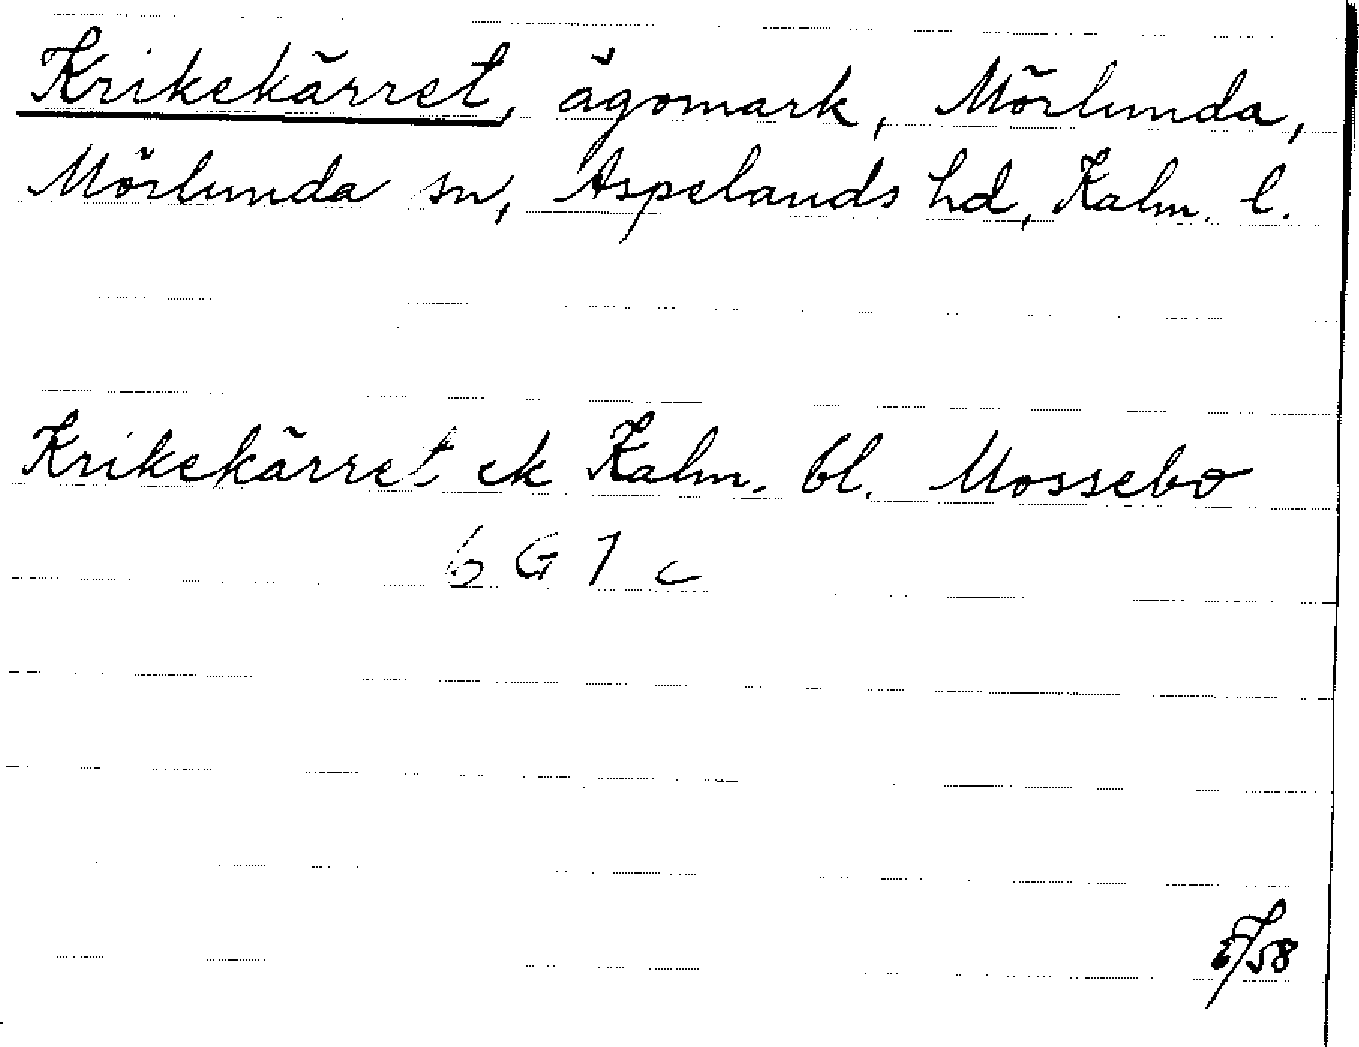 Krikekärret, ägomark, Mörlunda,
Mörlunda sn, Aspelands hd, Kalm. l.
Krikekärret ek Kalm. bl. Mossebo
6 G 1 c